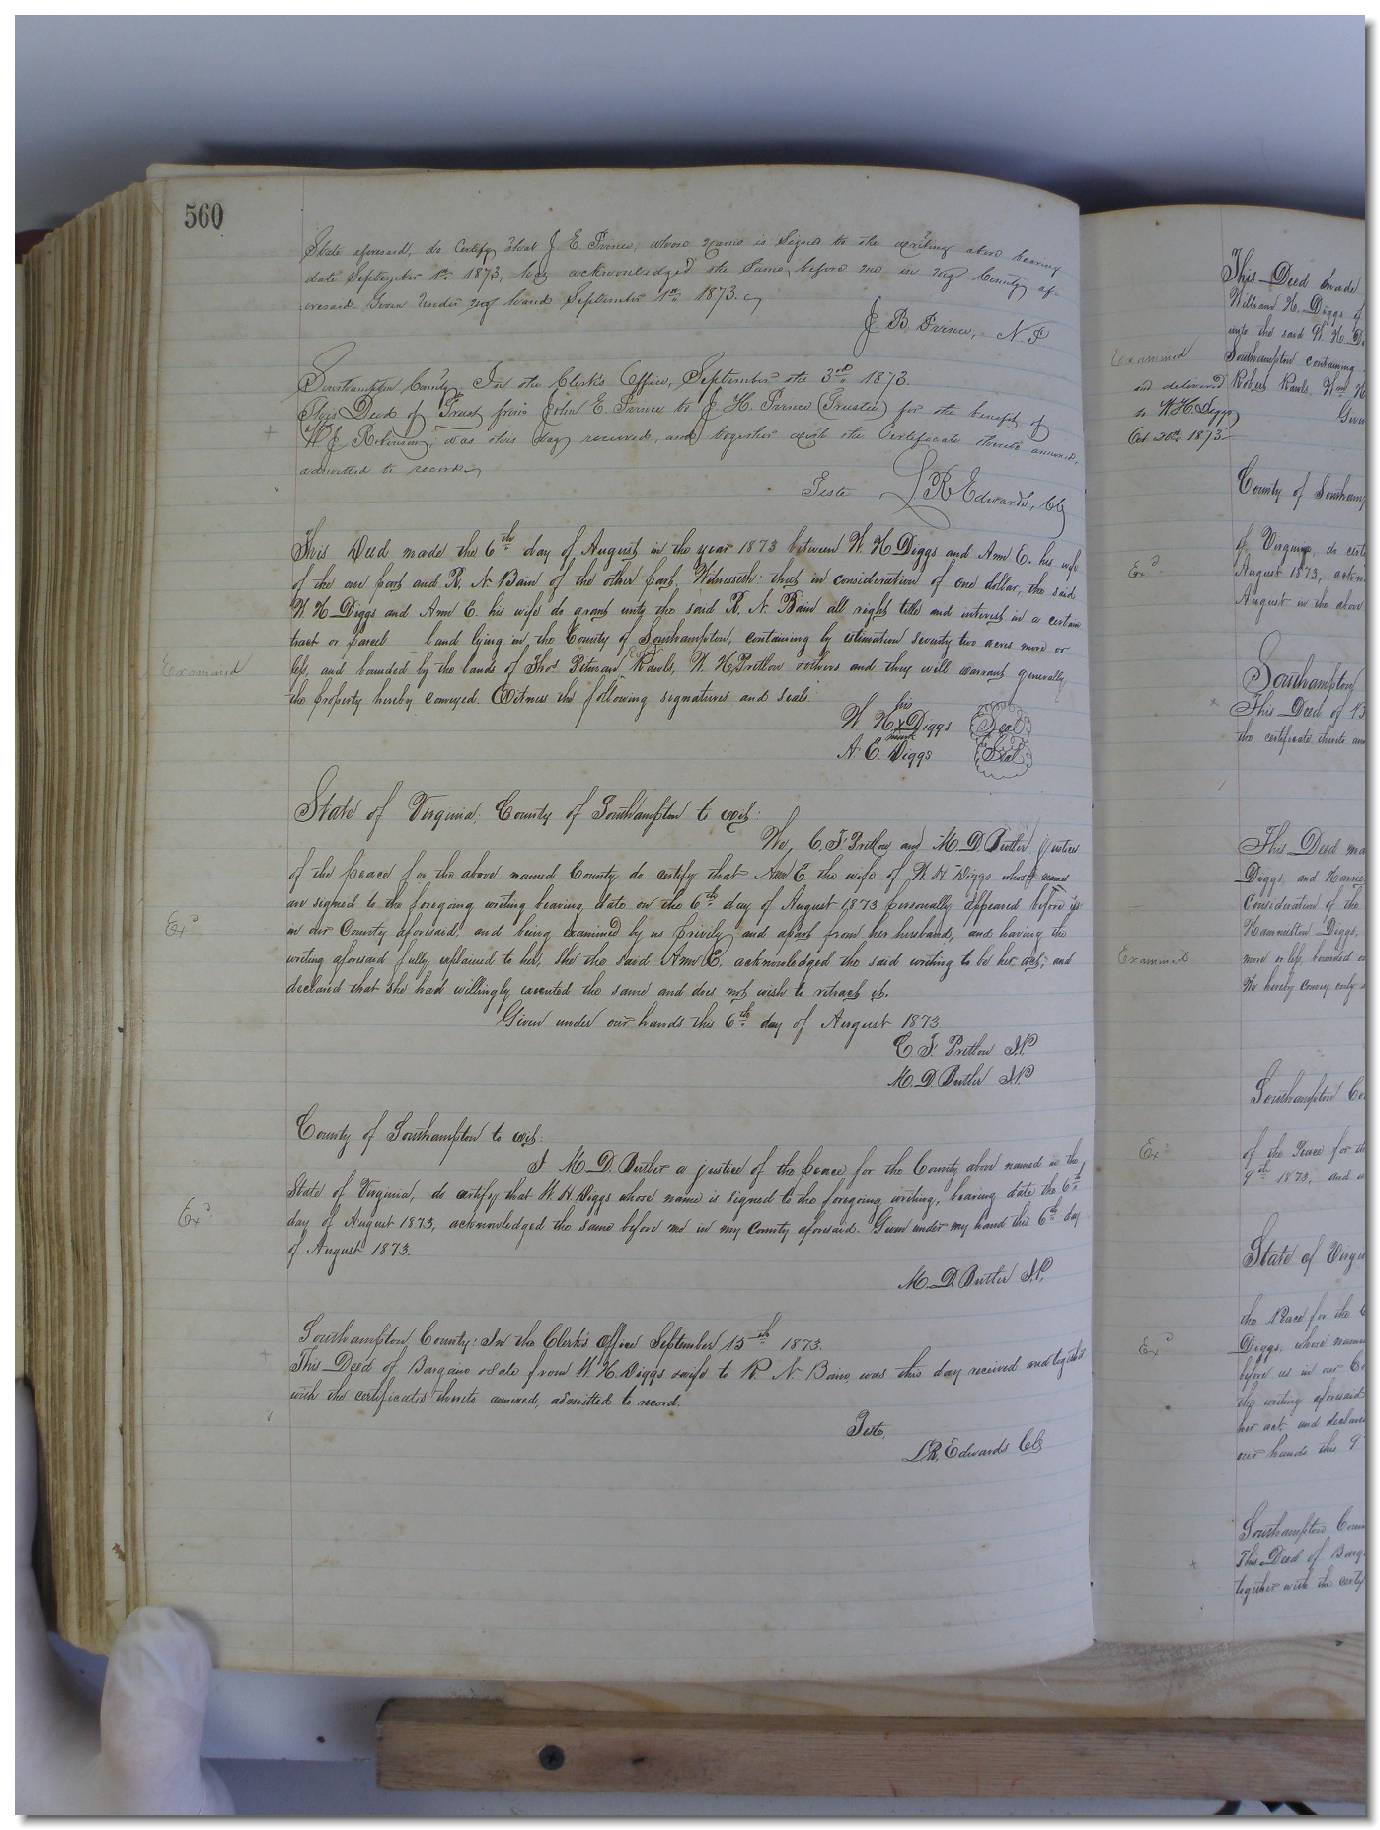 560
State aforesaid, do Certify that J E Prince, whose name is Signed to the writing above bearing
date September 1st 1873, has acknowledged the Same before me in my County af-
oresaid Given under my hand September 1st 1873.
J B Prince, N.P
Southampton County, In the Clerk's Office, September the 3rd 1873.
This Deed of Trust from John E. Prince to J. H. Prince (Trustee) for the benefit of
W J Robinson, was this day received, and together with the Certificate thereto annexed,
admitted to record
Teste L R Edwards, Clk
This Deed made the 6th day of August in the year 1873 between W. H Diggs and Ann E. his wife
of the one part and R. N Bain of the other part, Witnesseth: that in consideration of one dollar, the said
W H Diggs and Ann E. his wife do grant unto the said R. N. Bain all right title and interest in a certain
tract or parcel land lying in the County of Southampton, containing by estimation seventy two acres more or
Examined
less, and bounded by the lands of Thos Peteman Rawls, W. H. Pretlow & others and they will warrant generally
the property hereby conveyed. Witness the following signatures and seals.
his
W H x Diggs Seal
mark
A. E. Diggs Seal
State of Virginia, County of Southampton to wit:
We, C. F. Pretlow and M. D Butler justices
of the peace for the above named County do certify that Ann E the wife of W. H Diggs whose names
are signed to the foregoing writing bearing date on the 6th day of August 1873 personally appeared before us
Exd
in our County aforesaid, and being examined by us privily and apart from her husband, and having the
writing aforesaid fully explained to her, she the said Ann E. acknowledged the said writing to be her act, and
declared that she had willingly executed the same and does not wish to retract it.
Given under our hands this 6th day of August 1873.
C. F. Pretlow J.P
M. D. Butler J.P
County of Southampton to wit:
I M. D. Butler a justice of the peace for the County above named in the
State of Virginia, do certify that W. H. Diggs whose name is signed to the foregoing writing, bearing date the 6th
Exd
day of August 1873, acknowledged the same before me in my County aforesaid. Given under my hand this 6th day
of August 1873.
M. D. Butler J.P.
Southampton County: In the Clerk's Office September 15th 1873.
This Deed of Bargain & Sale from W. H. Diggs & wife to R. N. Bain, was this day received and together
with the certificates thereto annexed, admitted to record.
Teste,
L.R. Edwards Clk
This Deed made
William H. Diggs of
unto the said W. H. D
Examined
Southampton containing
and delivered
Robert Rawls, Wm H
to W.H. Diggs
Given
Oct 20th 1873
County of Southamp
of Virginia, do certi
Exd
August 1873, ackn
August in the above
Southampton
This Deed of B
the certificate thereto an
This Deed ma
Diggs, and Hanne
Consideration of the
Hamnelton Diggs,
Examined
more or less, bounded o
We hereby convey only
Southampton Co
Exd
of the Peace for th
9th 1873, and
State of Virgi
the Peace for the
Exd
Diggs, whose name
before us in our Co
the writing aforesaid
her act and declare
our hands this 9
Southampton Coun
This Deed of Barg
together with the certif